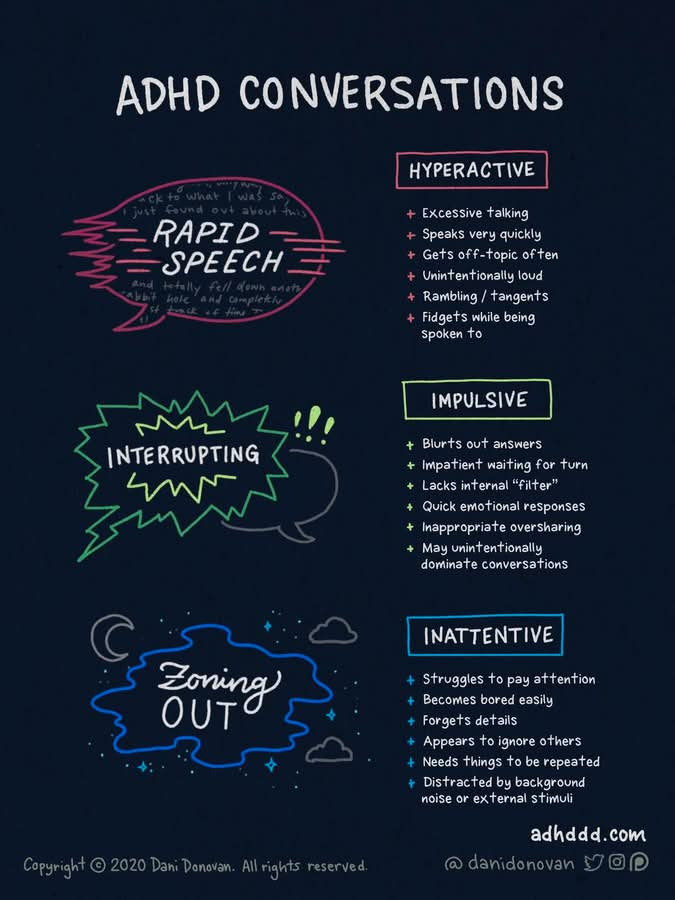 ADHD CONVERSATIONS
ack to what I was say
I just found out about this
RAPID
SPEECH
and totally fell down anoth
rabbit hole and completely
st track of time I
HYPERACTIVE
+ Excessive talking
+ Speaks very quickly
+ Gets off-topic often
+ Unintentionally loud
+ Rambling / tangents
+ Fidgets while being
spoken to
INTERRUPTING
!!!
IMPULSIVE
+ Blurts out answers
+ Impatient waiting for turn
+ Lacks internal “filter”
+ Quick emotional responses
+ Inappropriate oversharing
+ May unintentionally
dominate conversations
Zoning
OUT
INATTENTIVE
+ Struggles to pay attention
+ Becomes bored easily
+ Forgets details
+ Appears to ignore others
+ Needs things to be repeated
+ Distracted by background
noise or external stimuli
adhddd.com
Copyright © 2020 Dani Donovan. All rights reserved.
@danidonovan